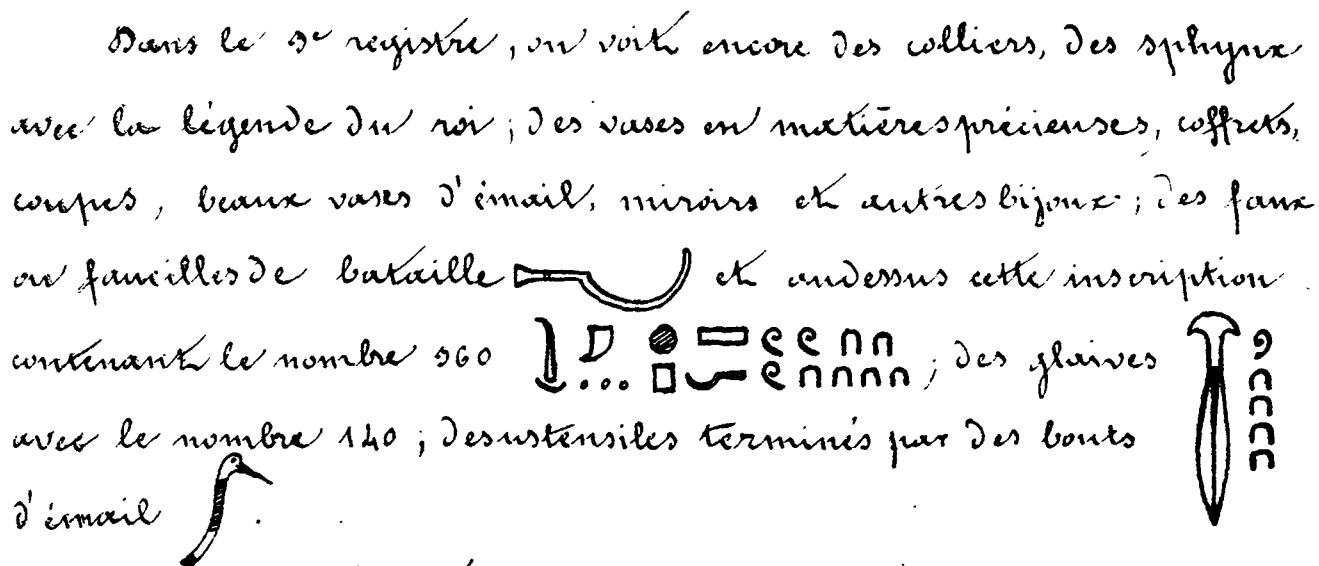 Dans le 3e registre, on voit encore des colliers, des sphynx
avec la légende du roi; des vases en matières précieuses, coffrets,
coupes, beaux vases d'émail, miroirs et autres bijoux; des faux
ou faucilles de bataille et audessus cette inscription
contenant le nombre 360 ; des glaives
avec le nombre 140; des ustensiles terminés par des bouts
d'émail .